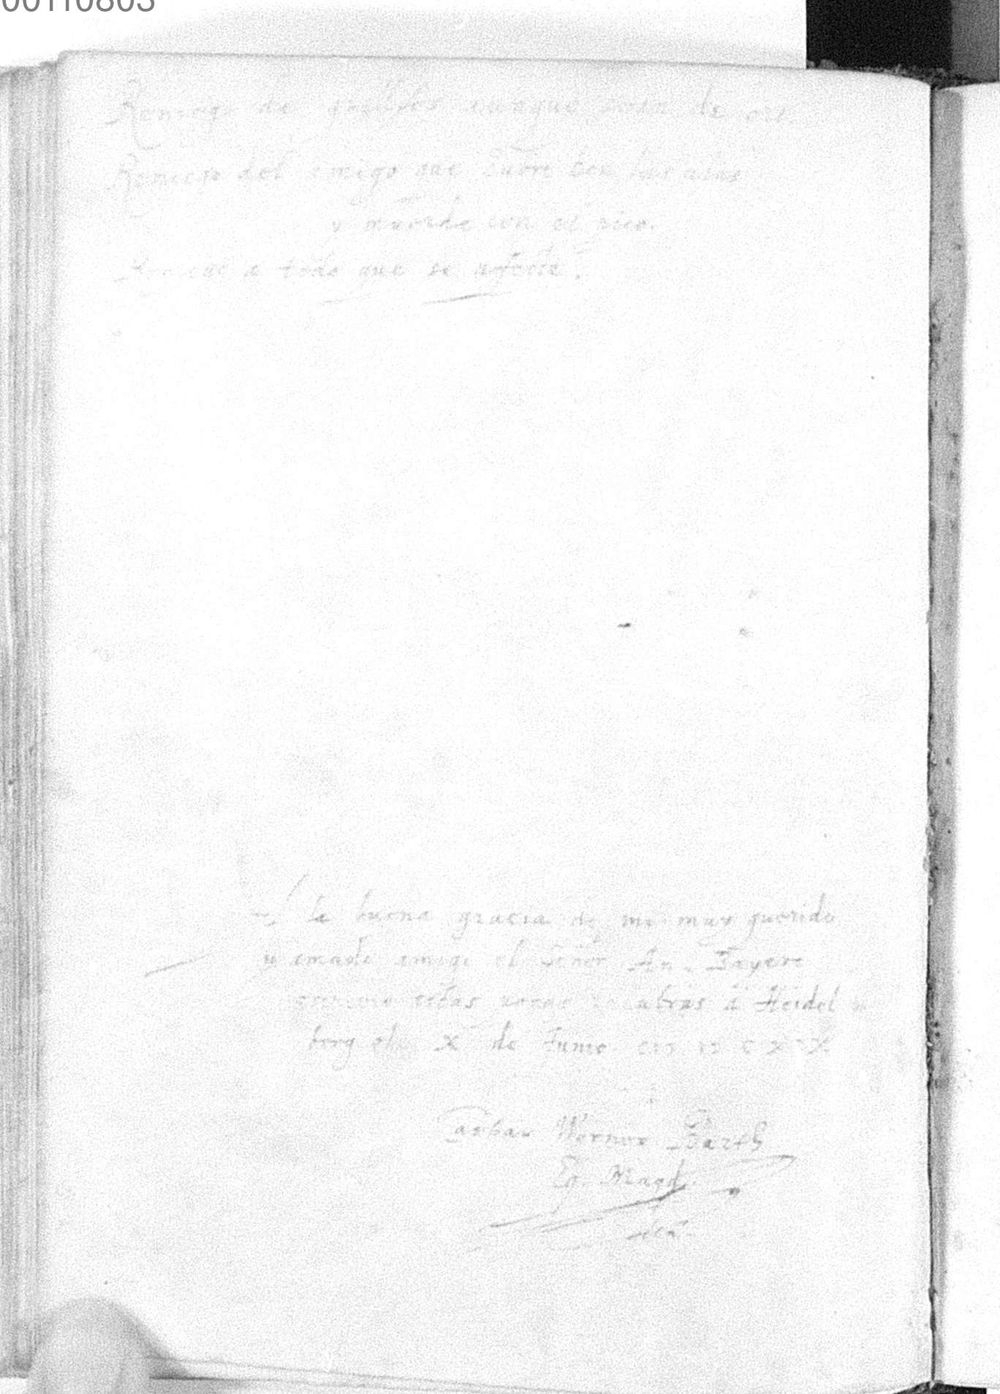 00110803
Reniego de grillos aunque sean de oro.
Reniego del amigo que cubre con las alas
y muerde con el pico.
Reniego a todo que se
la buena gracia de mi muy querido
y amado amigo el Señor An. Bayere
estas pocas palabras à Heidel
berg el X de Junio
Caspar Werner Barth
Eq. Magd.